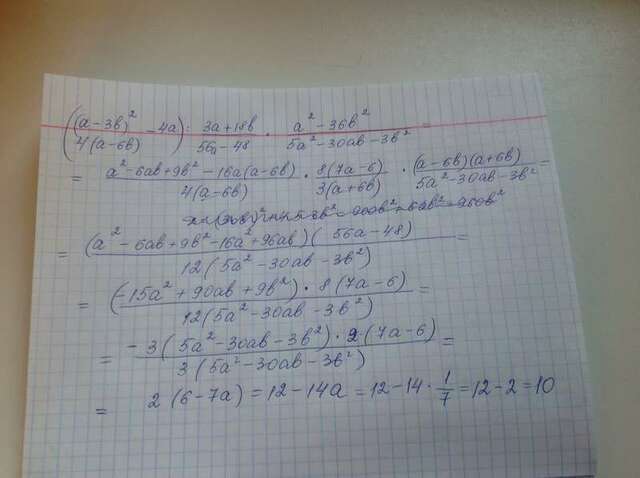 ((a-3b)²/4(a-6b) - 4a) : 3a+18b/56a-48 · a²-36b²/5a²-30ab-3b² =
= a²-6ab+9b²-16a(a-6b)/4(a-6b) · 8(7a-6)/3(a+6b) · (a-6b)(a+6b)/5a²-30ab-3b² =
= (a²-6ab+9b²-16a²+96ab)(56a-48)/12(5a²-30ab-3b²) =
= (-15a²+90ab+9b²)·8(7a-6)/12(5a²-30ab-3b²) =
= -3(5a²-30ab-3b²)·2(7a-6)/3(5a²-30ab-3b²) =
= 2(6-7a) = 12-14a = 12-14·1/7 = 12-2 = 10